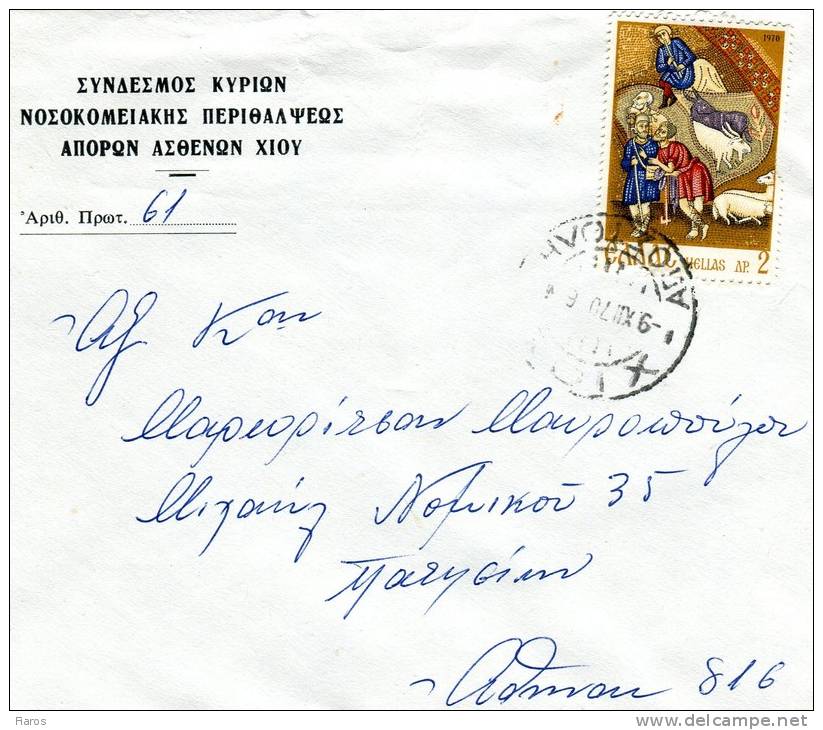 ΣΥΝΔΕΣΜΟΣ ΚΥΡΙΩΝ
ΝΟΣΟΚΟΜΕΙΑΚΗΣ ΠΕΡΙΘΑΛΨΕΩΣ
ΑΠΟΡΩΝ ΑΣΘΕΝΩΝ ΧΙΟΥ
Ἀριθ. Πρωτ. 61
1970
ΕΛΛΑΣ HELLAS ΔΡ. 2
-9 XII 70
ΧΙΟΣ
Αξ Καν
Μαργαρίταν Μαυροπούλου
Μιχαήλ Νομικού 35
Πατησίων
Αθήναι 816
Raros
delcampe.net